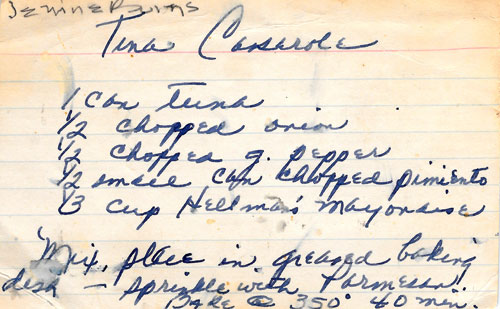 Tuna Casarole
1 can tuna
1/2 chopped onion
1/2 chopped g. pepper
1/2 small can chopped pimiento
1/3 cup Hellman's Mayonaise
Mix, place in greased baking
dish — sprinkle with Parmesan.
Bake @ 350° 40 min.